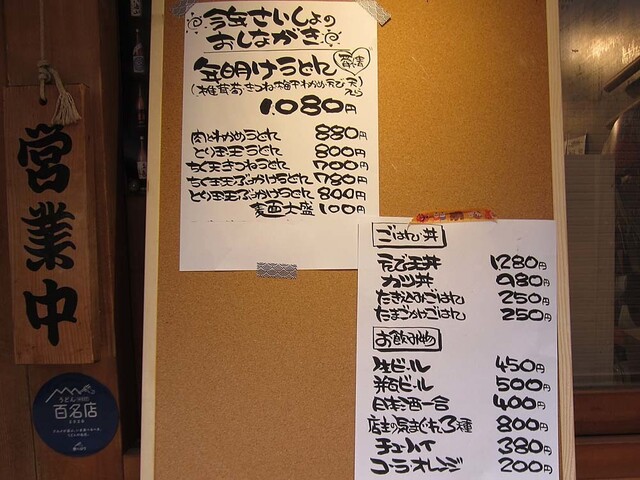 営業中
うどん
百名店
今年さいしょの
おしながき
年明けうどん
1.080円
肉とわかめうどん 880円
とり玉天うどん 800円
ちく玉天きつねうどん 700円
ちく玉天ぶっかけうどん 780円
とり玉天ぶっかけうどん 800円
麺大盛 100円
ごはん・丼
えび天丼 1280円
カツ丼 980円
たき込みごはん 250円
たまごかけごはん 250円
お飲み物
生ビール 450円
瓶ビール 500円
日本酒一合 400円
店主の気まぐれ3種 800円
チューハイ 380円
コーラ・オレンジ 200円